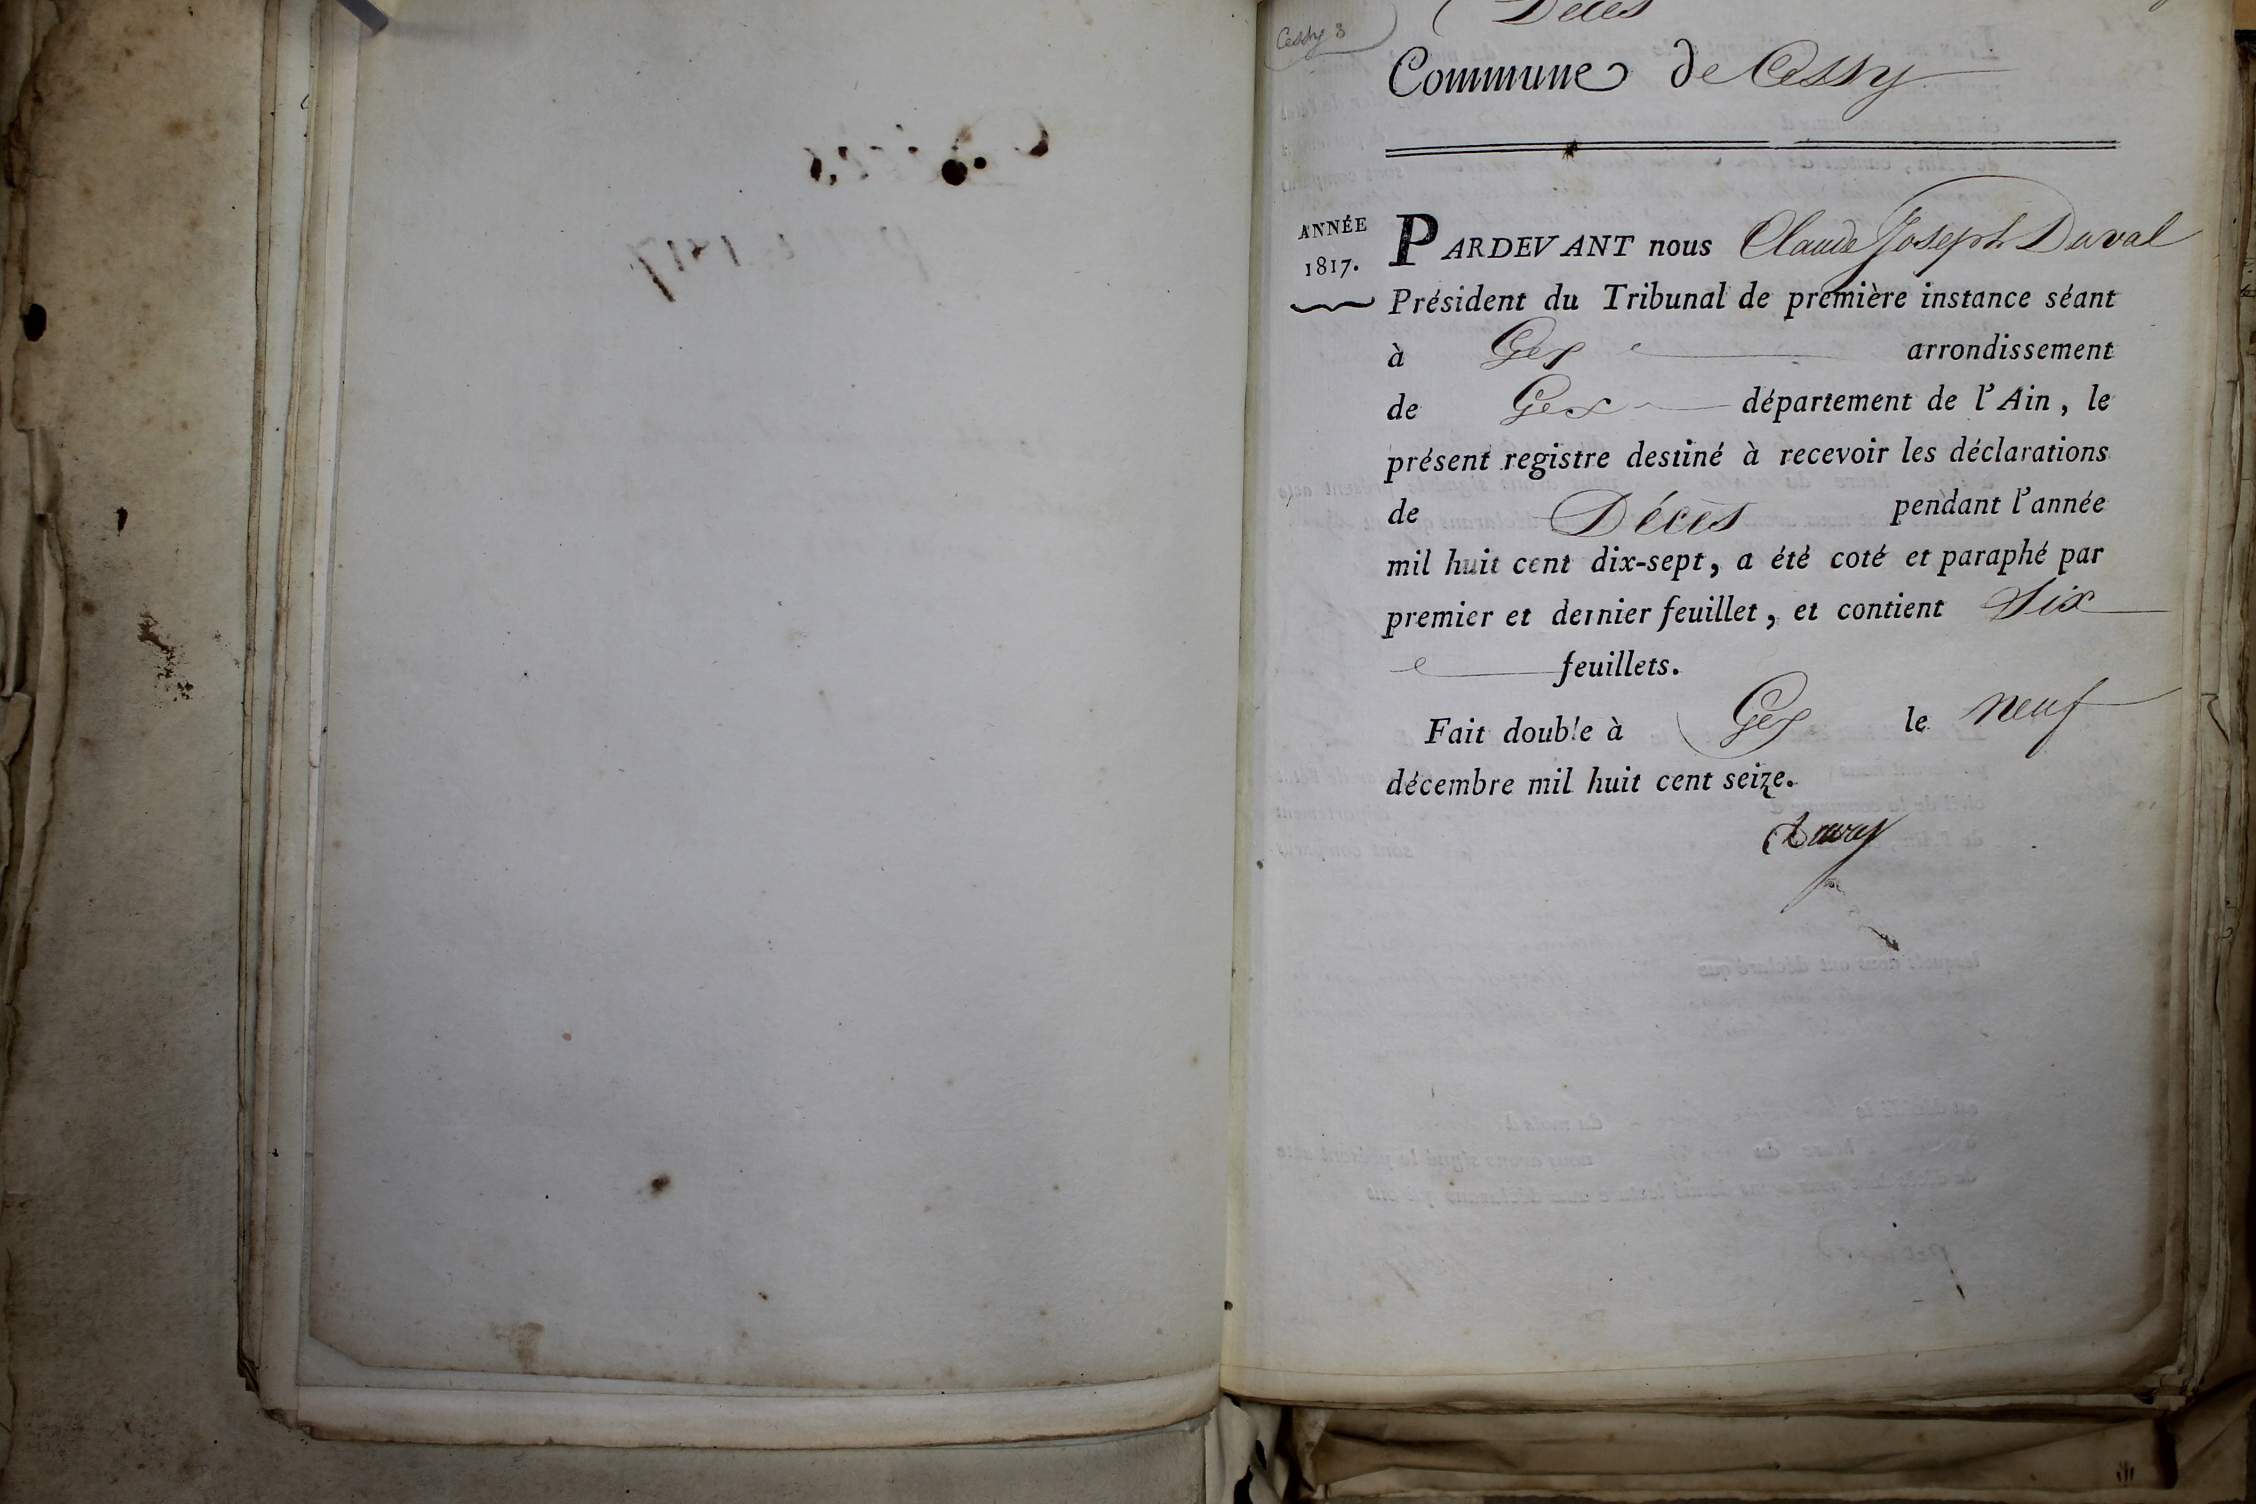 Cessy 8
Décès
Commune de Cessy
ANNÉE
1817.
PARDEVANT nous Claude Joseph Duval
Président du Tribunal de première instance séant
à Gex arrondissement
de Gex département de l'Ain, le
présent registre destiné à recevoir les déclarations
de Décès pendant l'année
mil huit cent dix-sept, a été coté et paraphé par
premier et dernier feuillet, et contient Six
feuillets.
Fait double à Gex le neuf
décembre mil huit cent seize.